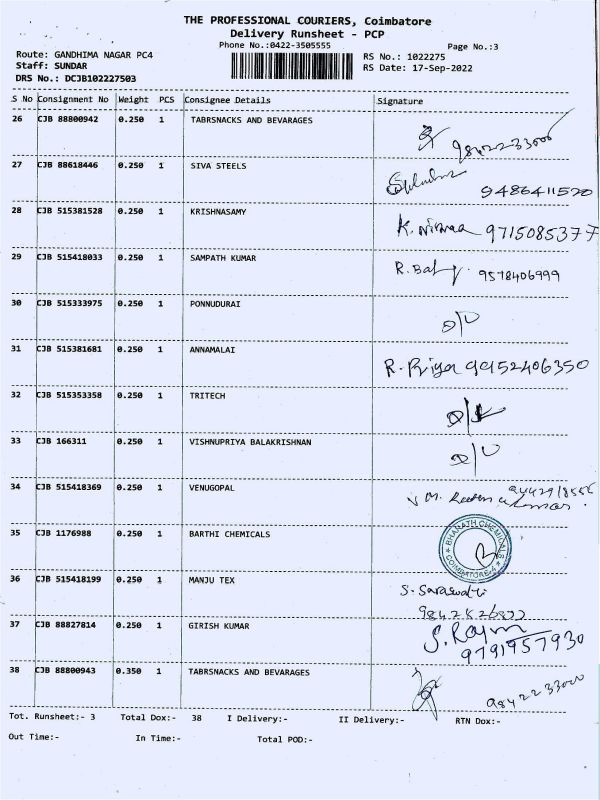 THE PROFESSIONAL COURIERS, Coimbatore
Delivery Runsheet - PCP
Phone No.:0422-3505555
Page No.:3
Route: GANDHIMA NAGAR PC4
RS No.: 1022275
Staff: SUNDAR
RS Date: 17-Sep-2022
DRS No.: DCJB102227503
S No Consignment No Weight PCS Consignee Details Signature
26 CJB 88800942 0.250 1 TABRSNACKS AND BEVARAGES
27 CJB 88618446 0.250 1 SIVA STEELS
9486411520
28 CJB 515381528 0.250 1 KRISHNASAMY
K. 9715085377
29 CJB 515418033 0.250 1 SAMPATH KUMAR
R. 9578406999
30 CJB 515333975 0.250 1 PONNUDURAI
D/L
31 CJB 515381681 0.250 1 ANNAMALAI
R. Priya 99152406350
32 CJB 515353358 0.250 1 TRITECH
33 CJB 166311 0.250 1 VISHNUPRIYA BALAKRISHNAN
D/L
34 CJB 515418369 0.250 1 VENUGOPAL
35 CJB 1176988 0.250 1 BARTHI CHEMICALS
BHARATH CHEMICALS
COIMBATORE-4
36 CJB 515418199 0.250 1 MANJU TEX
S. Saraswathi
37 CJB 88827814 0.250 1 GIRISH KUMAR
9791957930
38 CJB 88800943 0.350 1 TABRSNACKS AND BEVARAGES
9842233000
Tot. Runsheet:- 3 Total Dox:- 38 I Delivery:- II Delivery:- RTN Dox:-
Out Time:- In Time:- Total POD:-